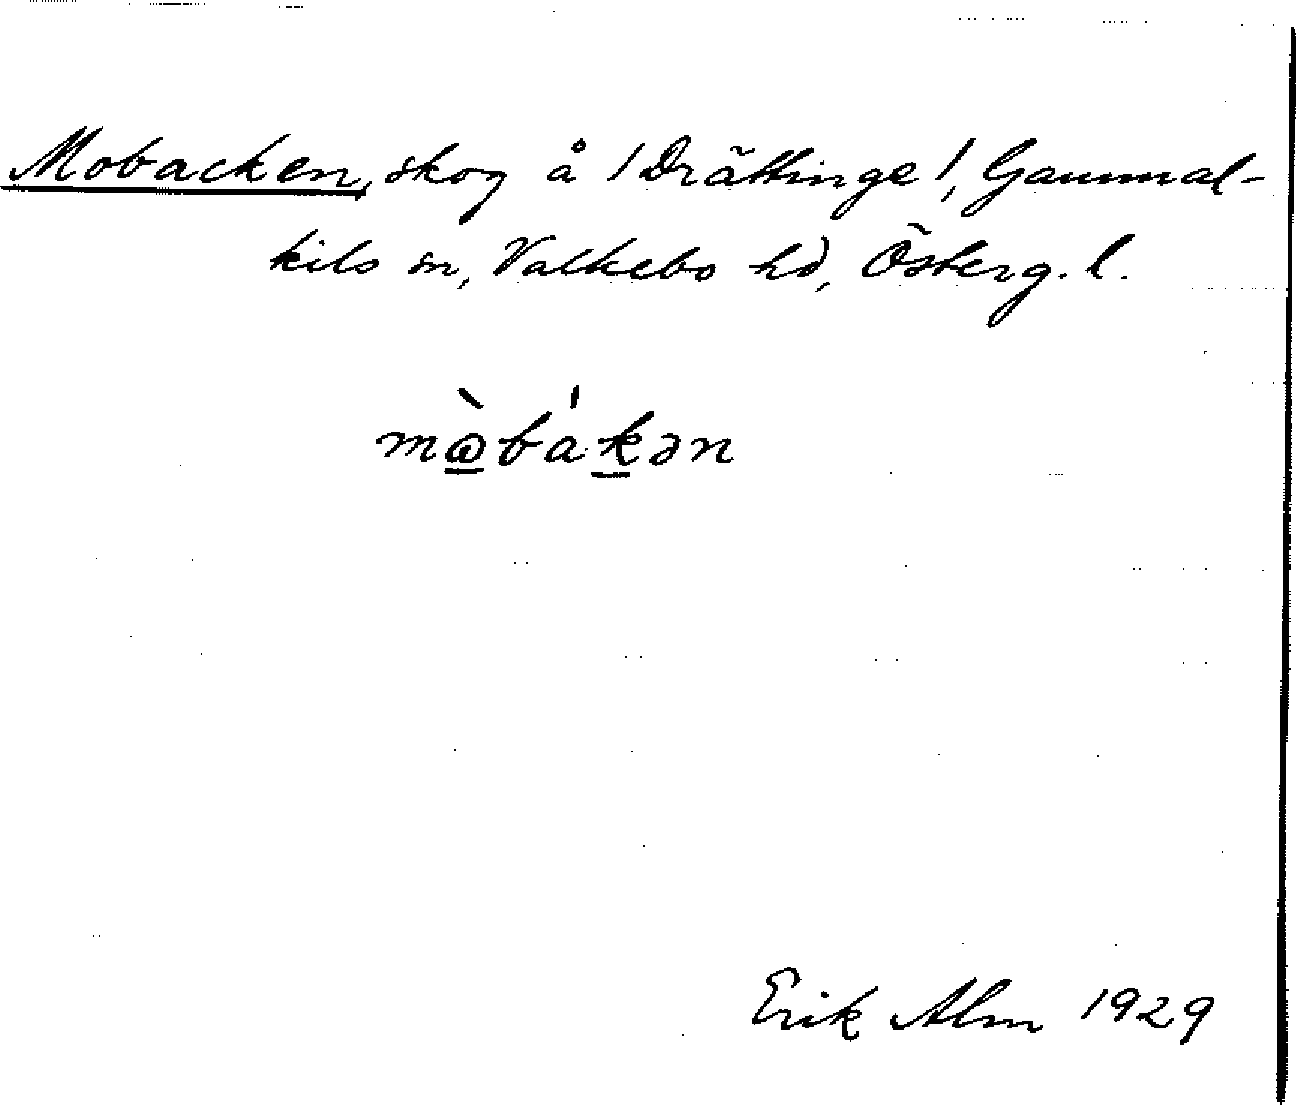 Mobacken, skog å /Drättinge/, Gammal-
kils sn, Valkebo hd, Österg. l.
mὼbákən
Erik Alm 1929